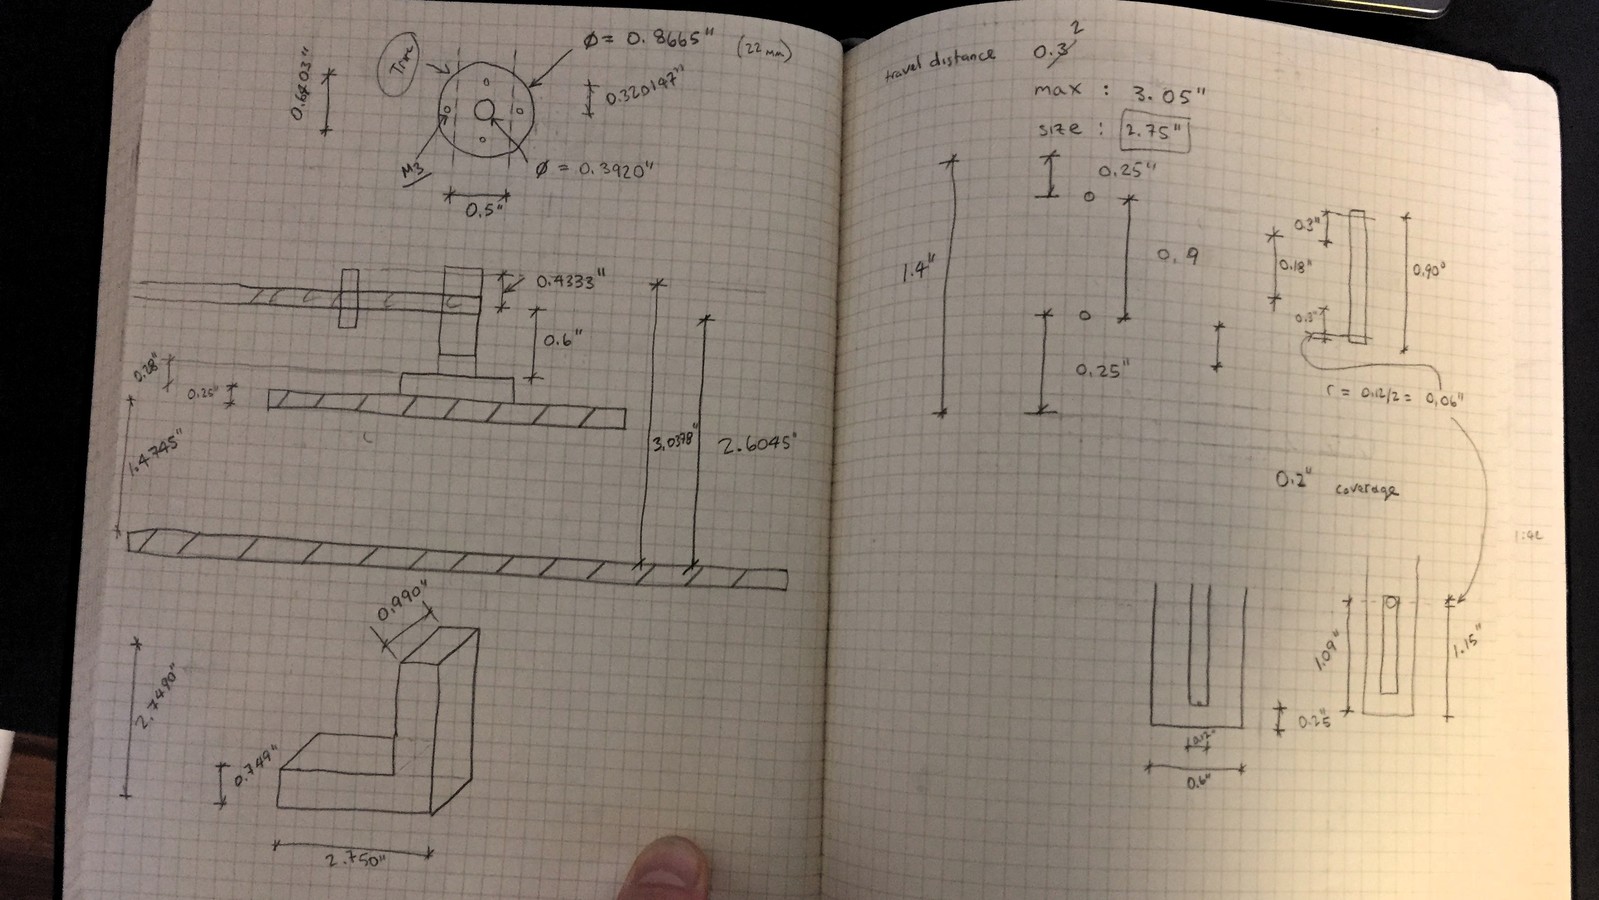 Ø = 0.8665" (22 mm)
0.6403"
0.320147"
M3
Ø = 0.3920"
0.5"
0.4333"
0.6"
0.28"
0.25"
1.4745"
3.0378"
2.6045"
0.990"
2.7490"
0.749"
2.750"
travel distance 0.3 2
max : 3.05"
size : 2.75"
0.25"
1.4"
0.9
0.25"
0.3"
0.18"
0.90"
0.3"
r = 0.12/2 = 0.06"
0.2" coverage
1.09"
1.15"
0.25"
0.12"
0.6"